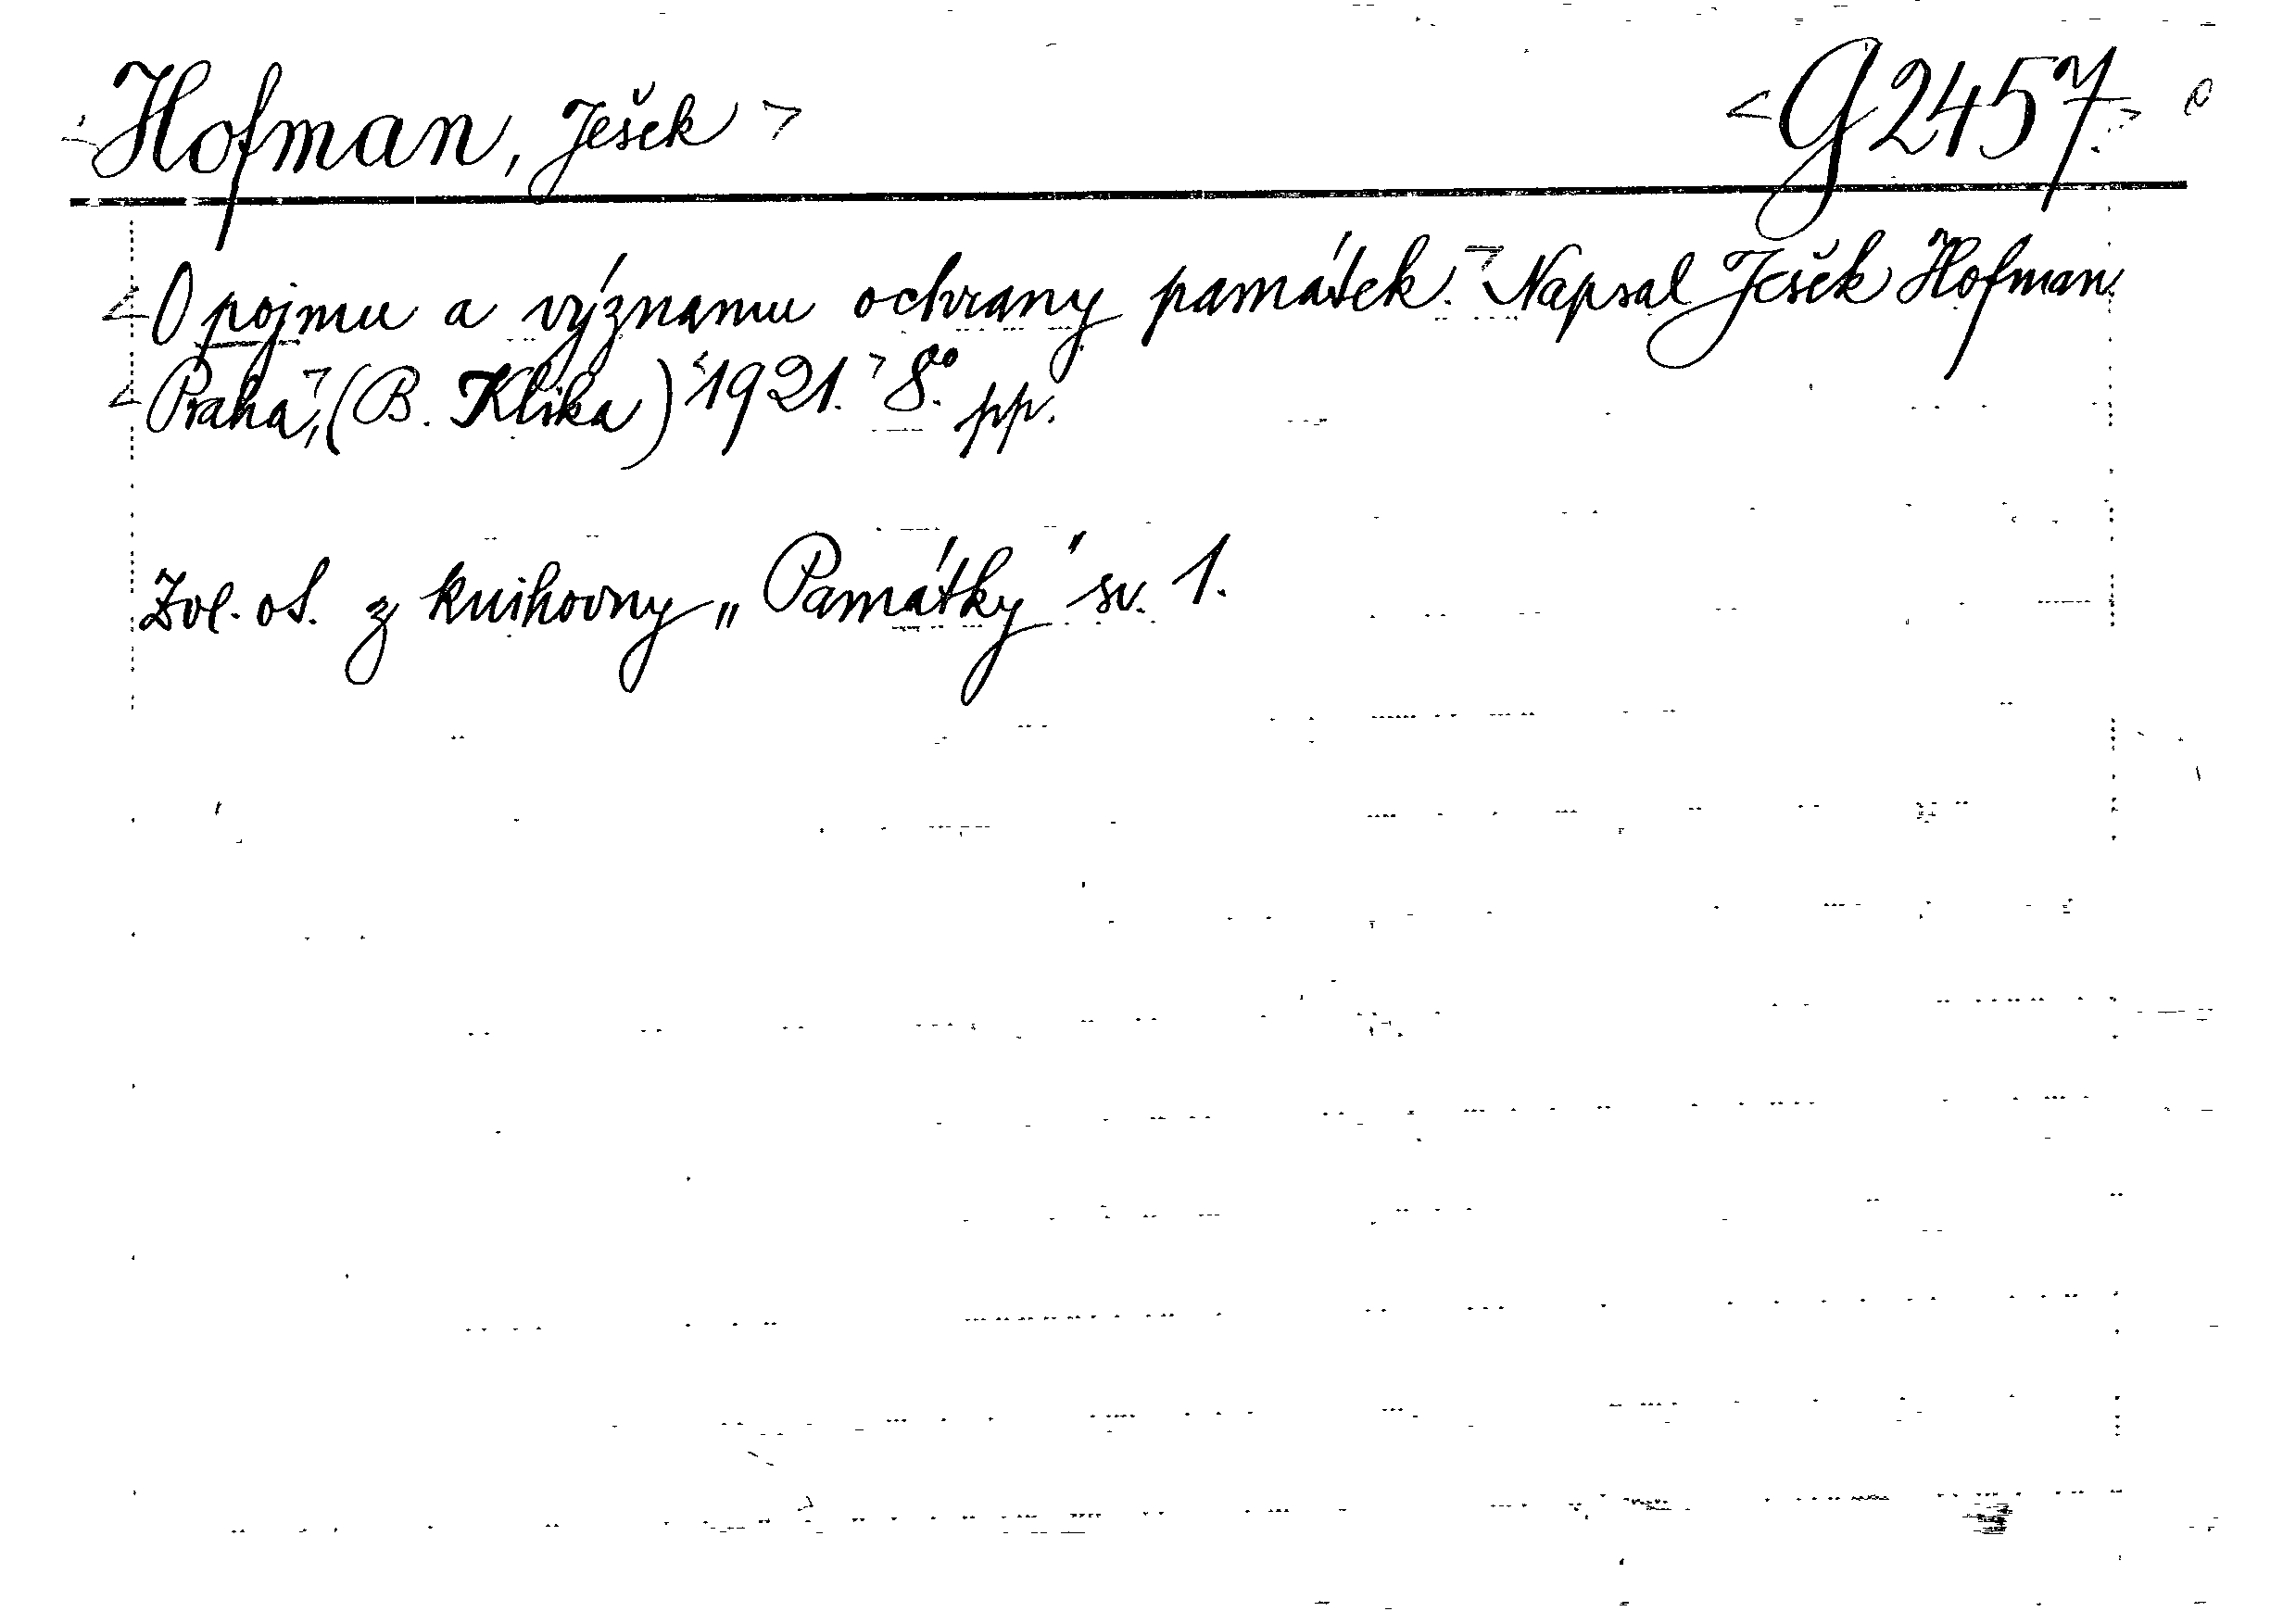 <Hofman, Ješek> <G 2457.>
<O pojmu a významu ochrany památek.> Napsal Ješek Hofman.
<Praha>, (B. Klika) <1921.> 8º. pp.
Zvl. ot. z knihovny „Památky" sv. 1.